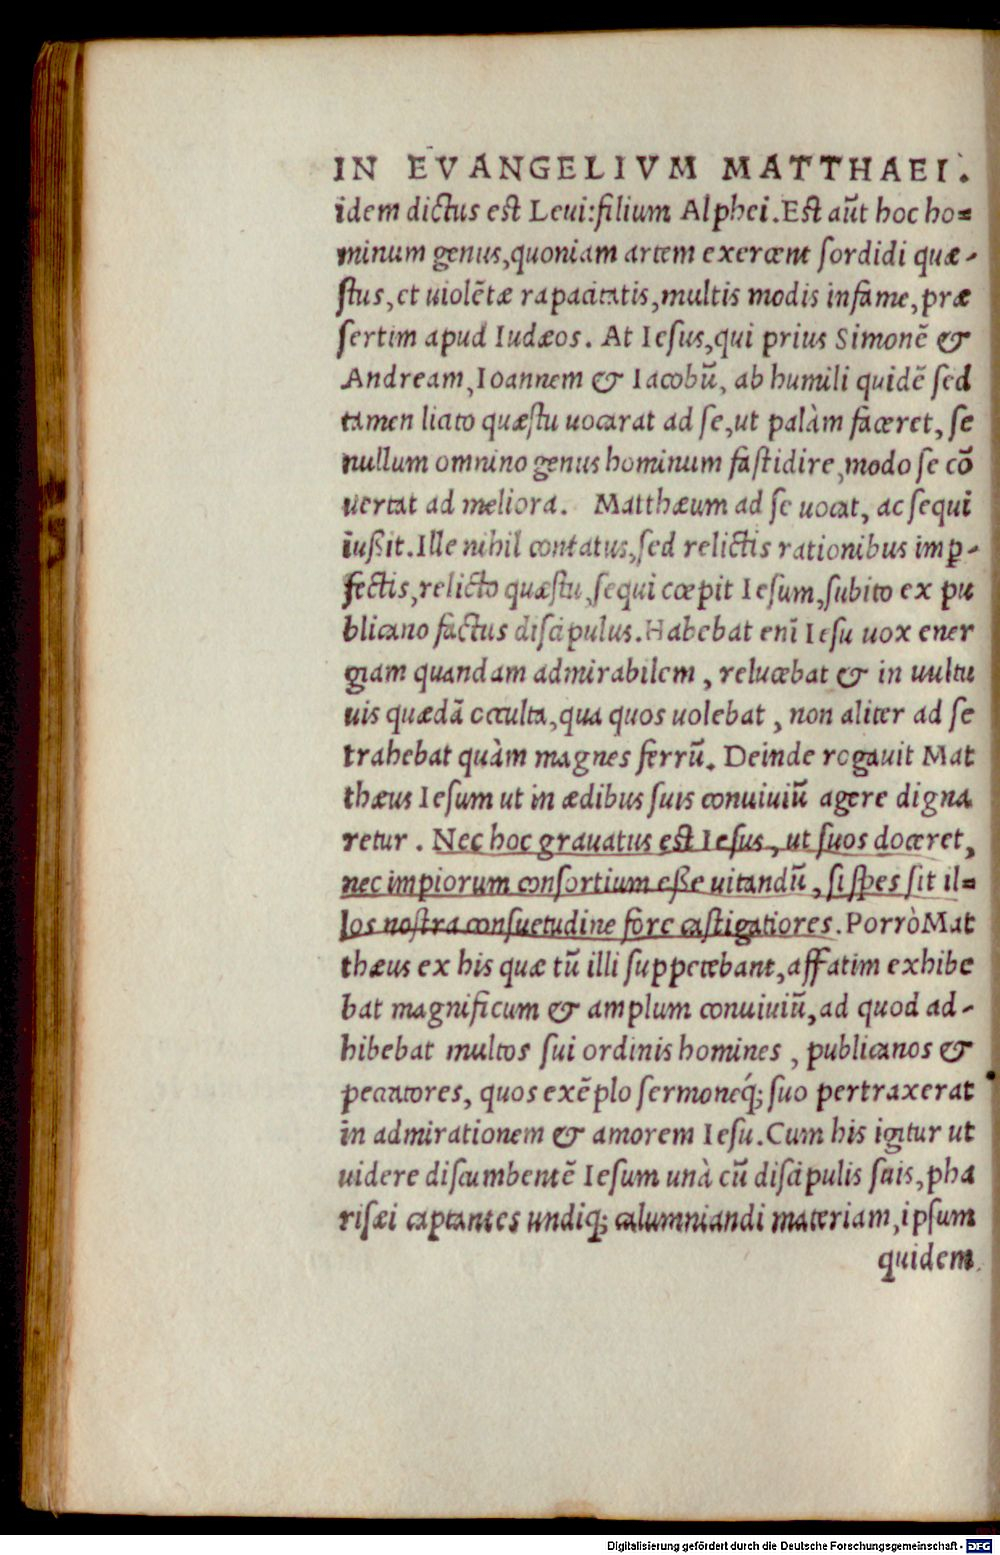 IN EVANGELIVM MATTHAEI.
idem dictus est Leui:filium Alphei.Est aūt hoc ho=
minum genus,quoniam artem exercent sordidi quæ-
stus,et uiolētæ rapacitatis,multis modis infame,præ
sertim apud Iudæos. At Iesus,qui prius Simonē &
Andream,Ioannem & Iacobū, ab humili quidē sed
tamen licito quæstu uocarat ad se,ut palàm faceret, se
nullum omnino genus hominum fastidire,modo se cō
uertat ad meliora. Matthæum ad se uocat, ac sequi
iußit.Ille nihil contatus,sed relictis rationibus imꝑ-
fectis,relicto quæstu,sequi cœpit Iesum,subito ex pu
blicano factus discipulus.Habebat enī Iesu uox ener
giam quandam admirabilem , relucebat & in uultu
uis quædā occulta,qua quos uolebat , non aliter ad se
trahebat quàm magnes ferrū. Deinde rogauit Mat
thæus Iesum ut in ædibus suis conuiuiū agere digna
retur . Nec hoc grauatus est Iesus, ut suos doceret,
nec impiorum consortium eße uitandū, si spes sit il=
los nostra consuetudine fore castigatiores. PorròMat
thæus ex his quæ tū illi suppetebant,affatim exhibe
bat magnificum & amplum conuiuiū,ad quod ad-
hibebat multos sui ordinis homines , publicanos &
peccatores, quos exēplo sermoneq́; suo pertraxerat
in admirationem & amorem Iesu.Cum his igitur ut
uidere discumbentē Iesum unà cū discipulis suis,pha
risæi captantes undiq; calumniandi materiam,ipsum
quidem
Digitalisierung gefördert durch die Deutsche Forschungsgemeinschaft - DFG